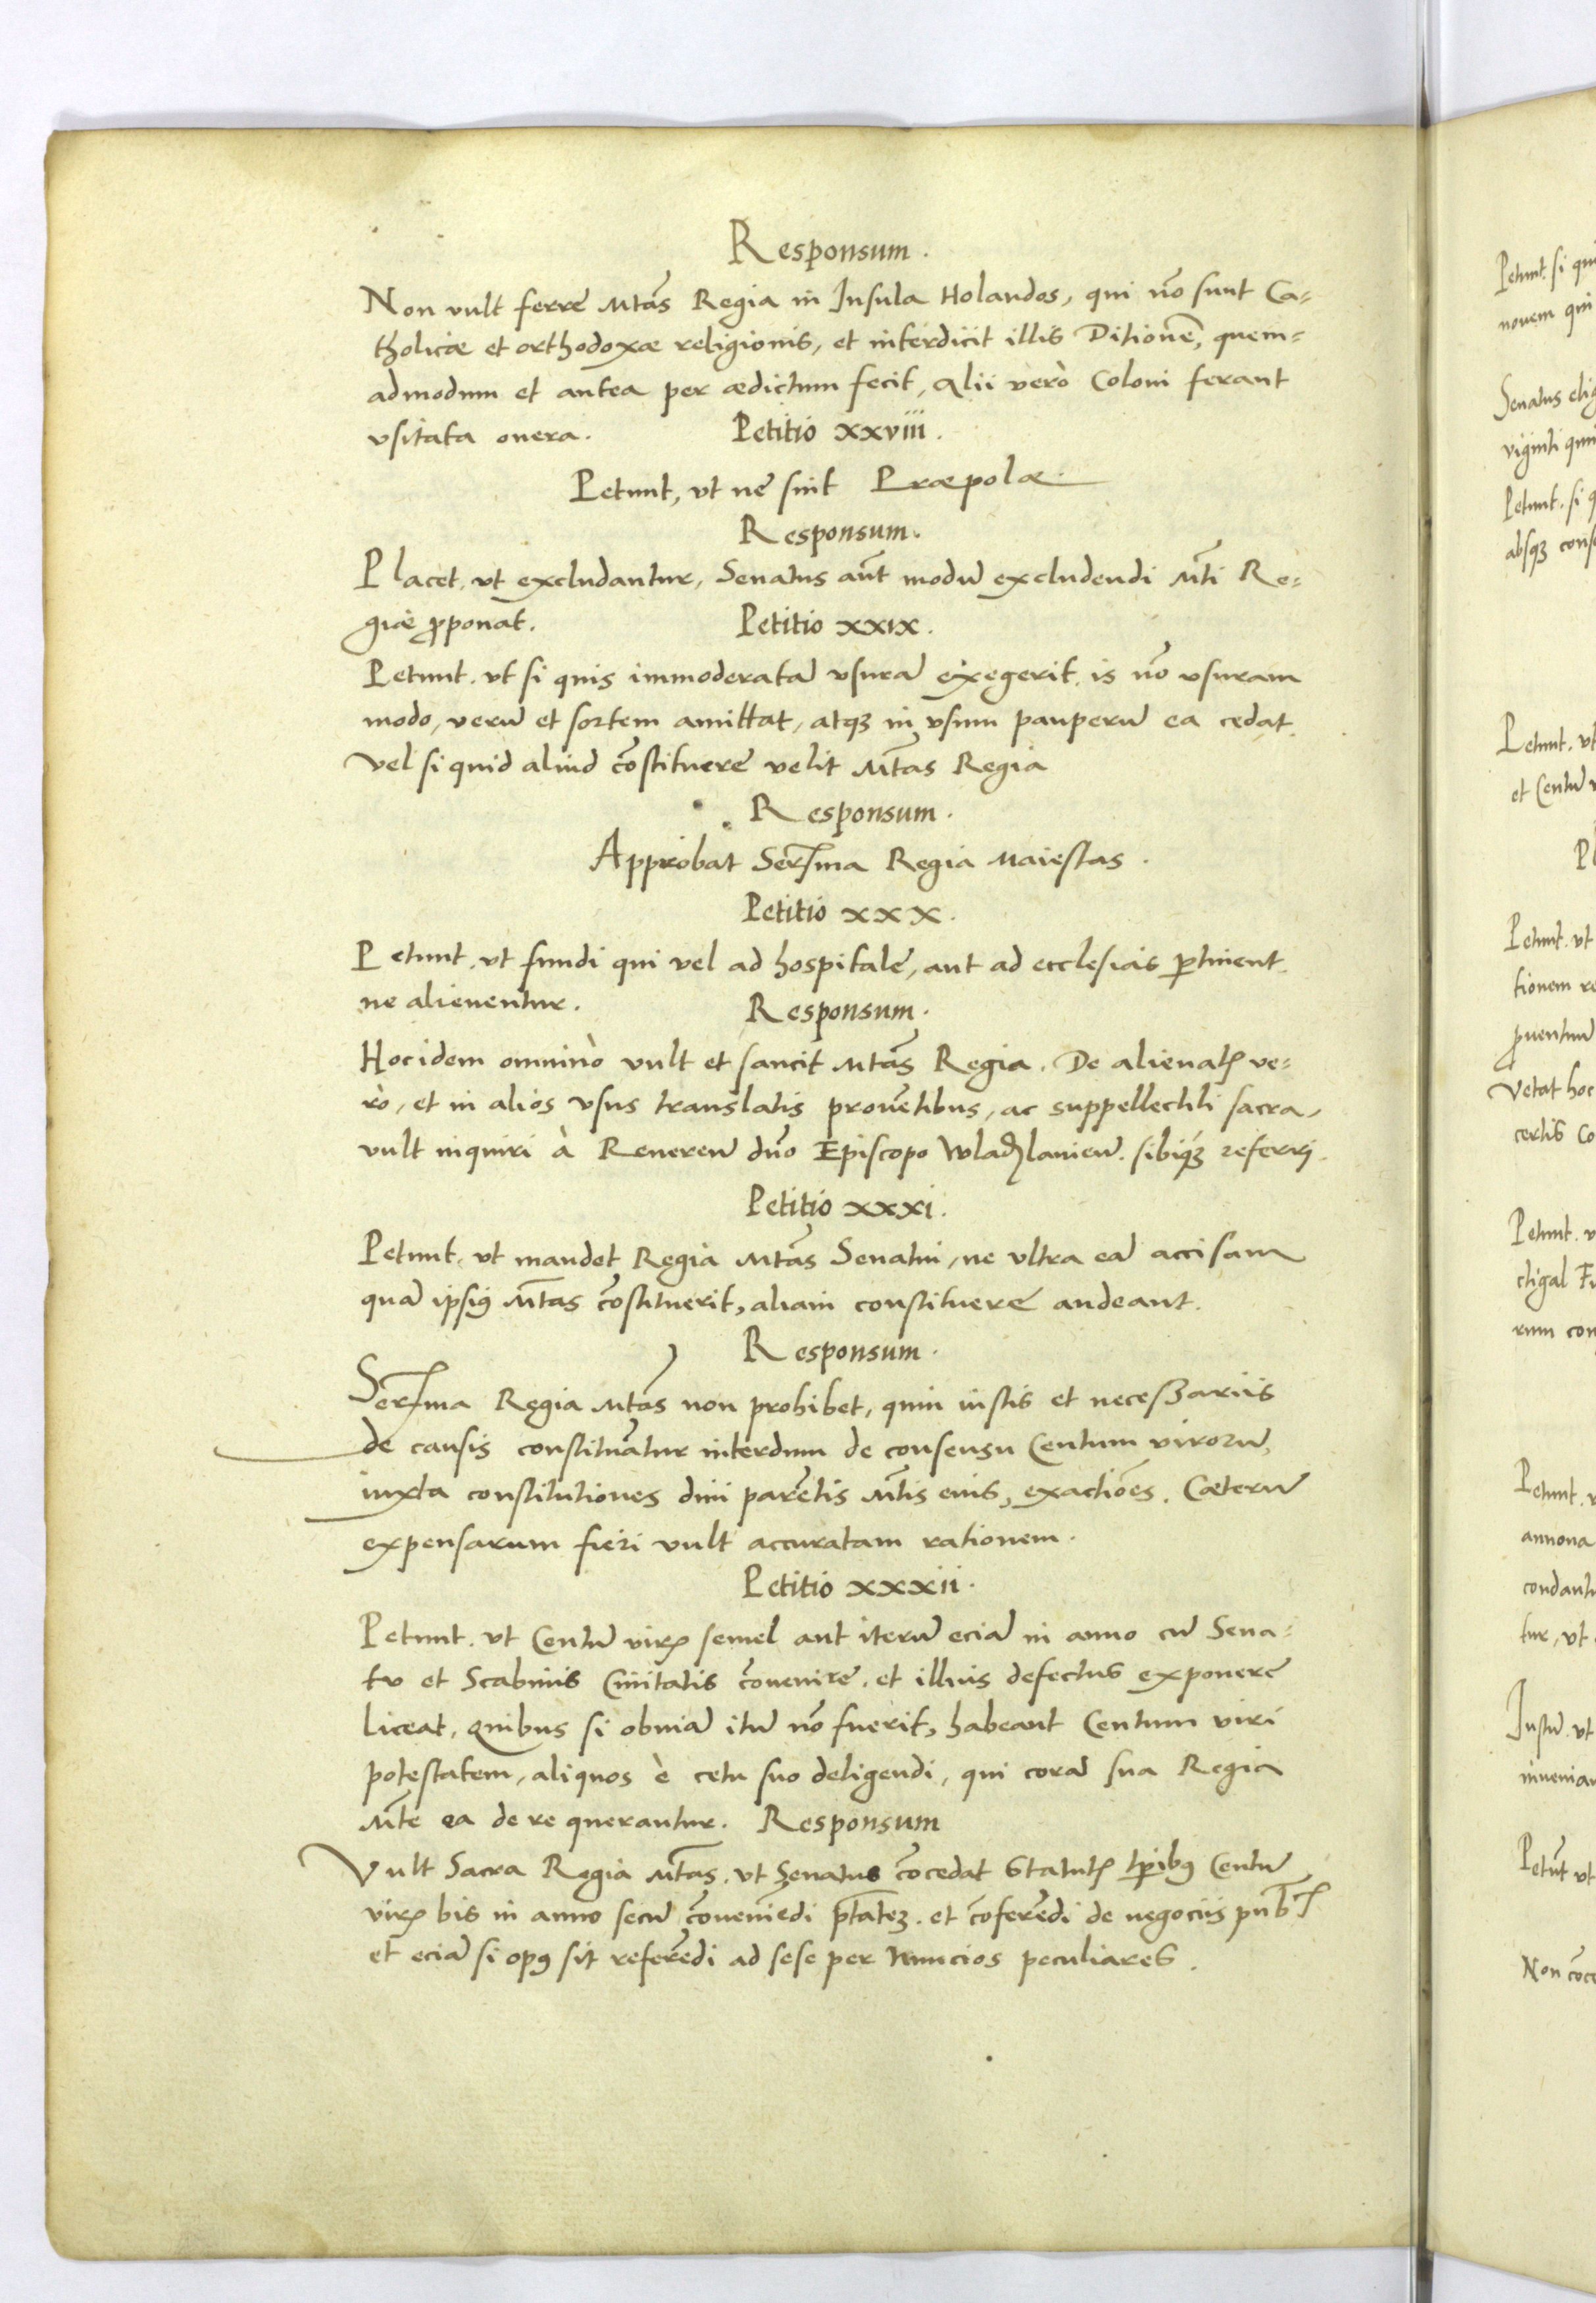 Responsum.
Non vult ferre Mtas Regia in Insula Holandos, qui nõ sunt Ca=
tholicæ et orthodoxæ religionis, et interdicit illis Ditionẽ, quem=
admodum et antea per ædictum fecit, Alii verò Coloni ferant
vsitata onera. Petitio xxviii.
Petunt, vt ne sint Præpolæ.
Responsum.
Placet, vt excludantur, Senatus aũt modũ excludendi Mti Re=
giæ ꝓponat. Petitio xxix.
Petunt. vt si quis immoderatã vsurã exegerit. is nõ vsuram
modo, verũ et sortem amittat, atqȝ in vsum pauperũ ea cedat.
Vel si quid aliud cõstituere velit Mtas Regia
Responsum.
Approbat Serma Regia Maiestas.
Petitio xxx.
Petunt, vt fundi qui vel ad hospitale, aut ad ecclesias ꝑtinent.
ne alienentur. Responsum.
Hoc idem omninò vult et sancit Mtas Regia. De alienatꝭ ve=
rò, et in alios vsus translatis prouẽtibus, ac suppellectili sacra,
vult inquiri à Reuerenñ dño Episcopo Wladislauien̄. sibiqȝ referri.
Petitio xxxi.
Petunt. vt mandet Regia Mtas Senatui, ne vltra eã accisam
quã ipsiꝰ Mtas cõstituerit, aliam constituere audeant.
Responsum.
Serma Regia Mtas non prohibet, quin iustis et necessariis
de causis constituãtur interdum de consensu Centum virorũ,
iuxta constitutiones diui parẽtis Mtis eius, exactiões. Cæterũ
expensarum fieri vult accuratam rationem.
Petitio xxxii.
Petunt. vt Centũ virꝭ semel aut iterũ eciã in anno cũ Sena=
tu et Scabinis Ciuitatis cõuenire. et illius defectus exponere
liceat, Quibus si obuiã itũ nõ fuerit, habeant Centum viri
potestatem, aliquos è cetu suo deligendi, qui corã sua Regia
Mte ea de re querantur. Responsum
Vult Sacra Regia Mtas, vt Senatus cõcedat Statutꝭ tꝑibꝰ Centũ
virꝭ bis in anno secũ cõueniẽdi ptãtẽȝ. et cõferẽdi de negociis publꝭ
et eciã si opꝰ sit referẽdi ad sese per Nuncios peculiares.
Petunt. si qu
nouem qui
Senatus elig
viginti quin
Petunt. si q
absqȝ conse
Petunt, vt
et Centũ v
Pl
Petunt. vt
tionem re
ꝓuentuũ
Vetat hoc
certis co
Petunt. v
ctigal Fu
rum con
Petunt. v
annona
condantu
tur, vt
Iustũ. vt
inuenian
Petũt vt
Non cõce